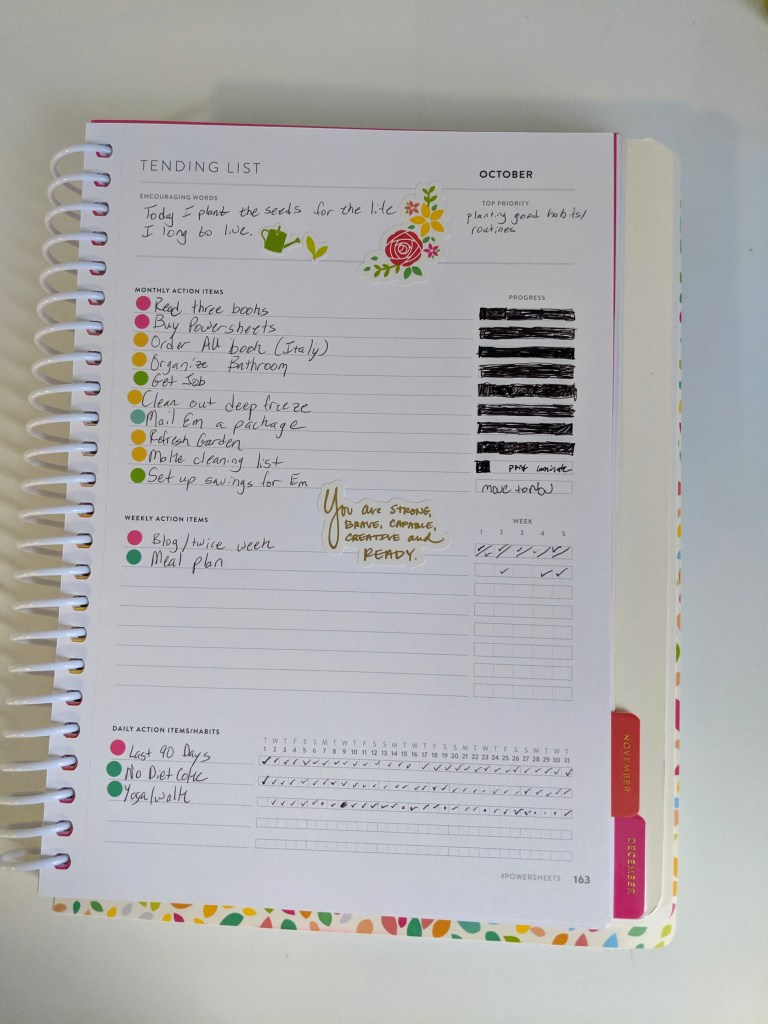 TENDING LIST
OCTOBER
ENCOURAGING WORDS
TOP PRIORITY
Today I plant the seeds for the life
I long to live.
planting good habits/
routines
MONTHLY ACTION ITEMS
PROGRESS
Read three books
Buy Powersheets
Order AU book (Italy)
Organize Bathroom
Get Job
Clean out deep freeze
Mail Em a package
Refresh Garden
Make cleaning list
laminate
Set up savings for Em
move to Nov
You are STRONG,
BRAVE, CAPABLE,
CREATIVE and
READY.
WEEKLY ACTION ITEMS
WEEK
1 2 3 4 5
Blog/twice week
Meal plan
DAILY ACTION ITEMS/HABITS
T W T F S S M T W T F S S M T W T F S S M T W T F S S M T W T
1 2 3 4 5 6 7 8 9 10 11 12 13 14 15 16 17 18 19 20 21 22 23 24 25 26 27 28 29 30 31
Last 90 Days
No Diet Coke
Yoga/walk
#POWERSHEETS 163
NOVEMBER
DECEMBER